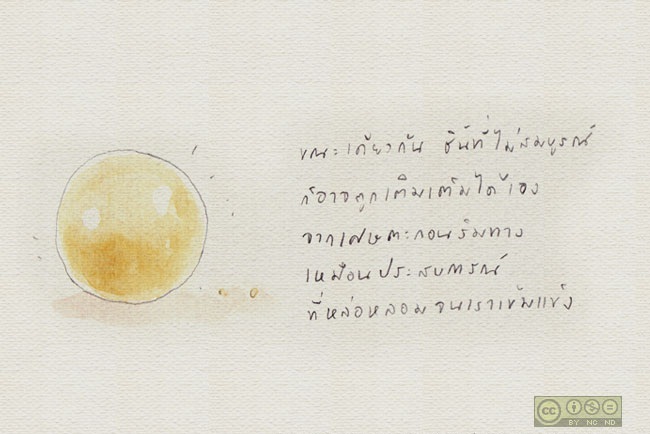 ขณะเดียวกัน ชิ้นที่ไม่สมบูรณ์
ก็อาจถูกเติมเต็มได้เอง
จากเศษตะกอนริมทาง
เหมือนประสบการณ์
ที่หล่อหลอมจนเราเข้มแข็ง
cc
BY NC ND